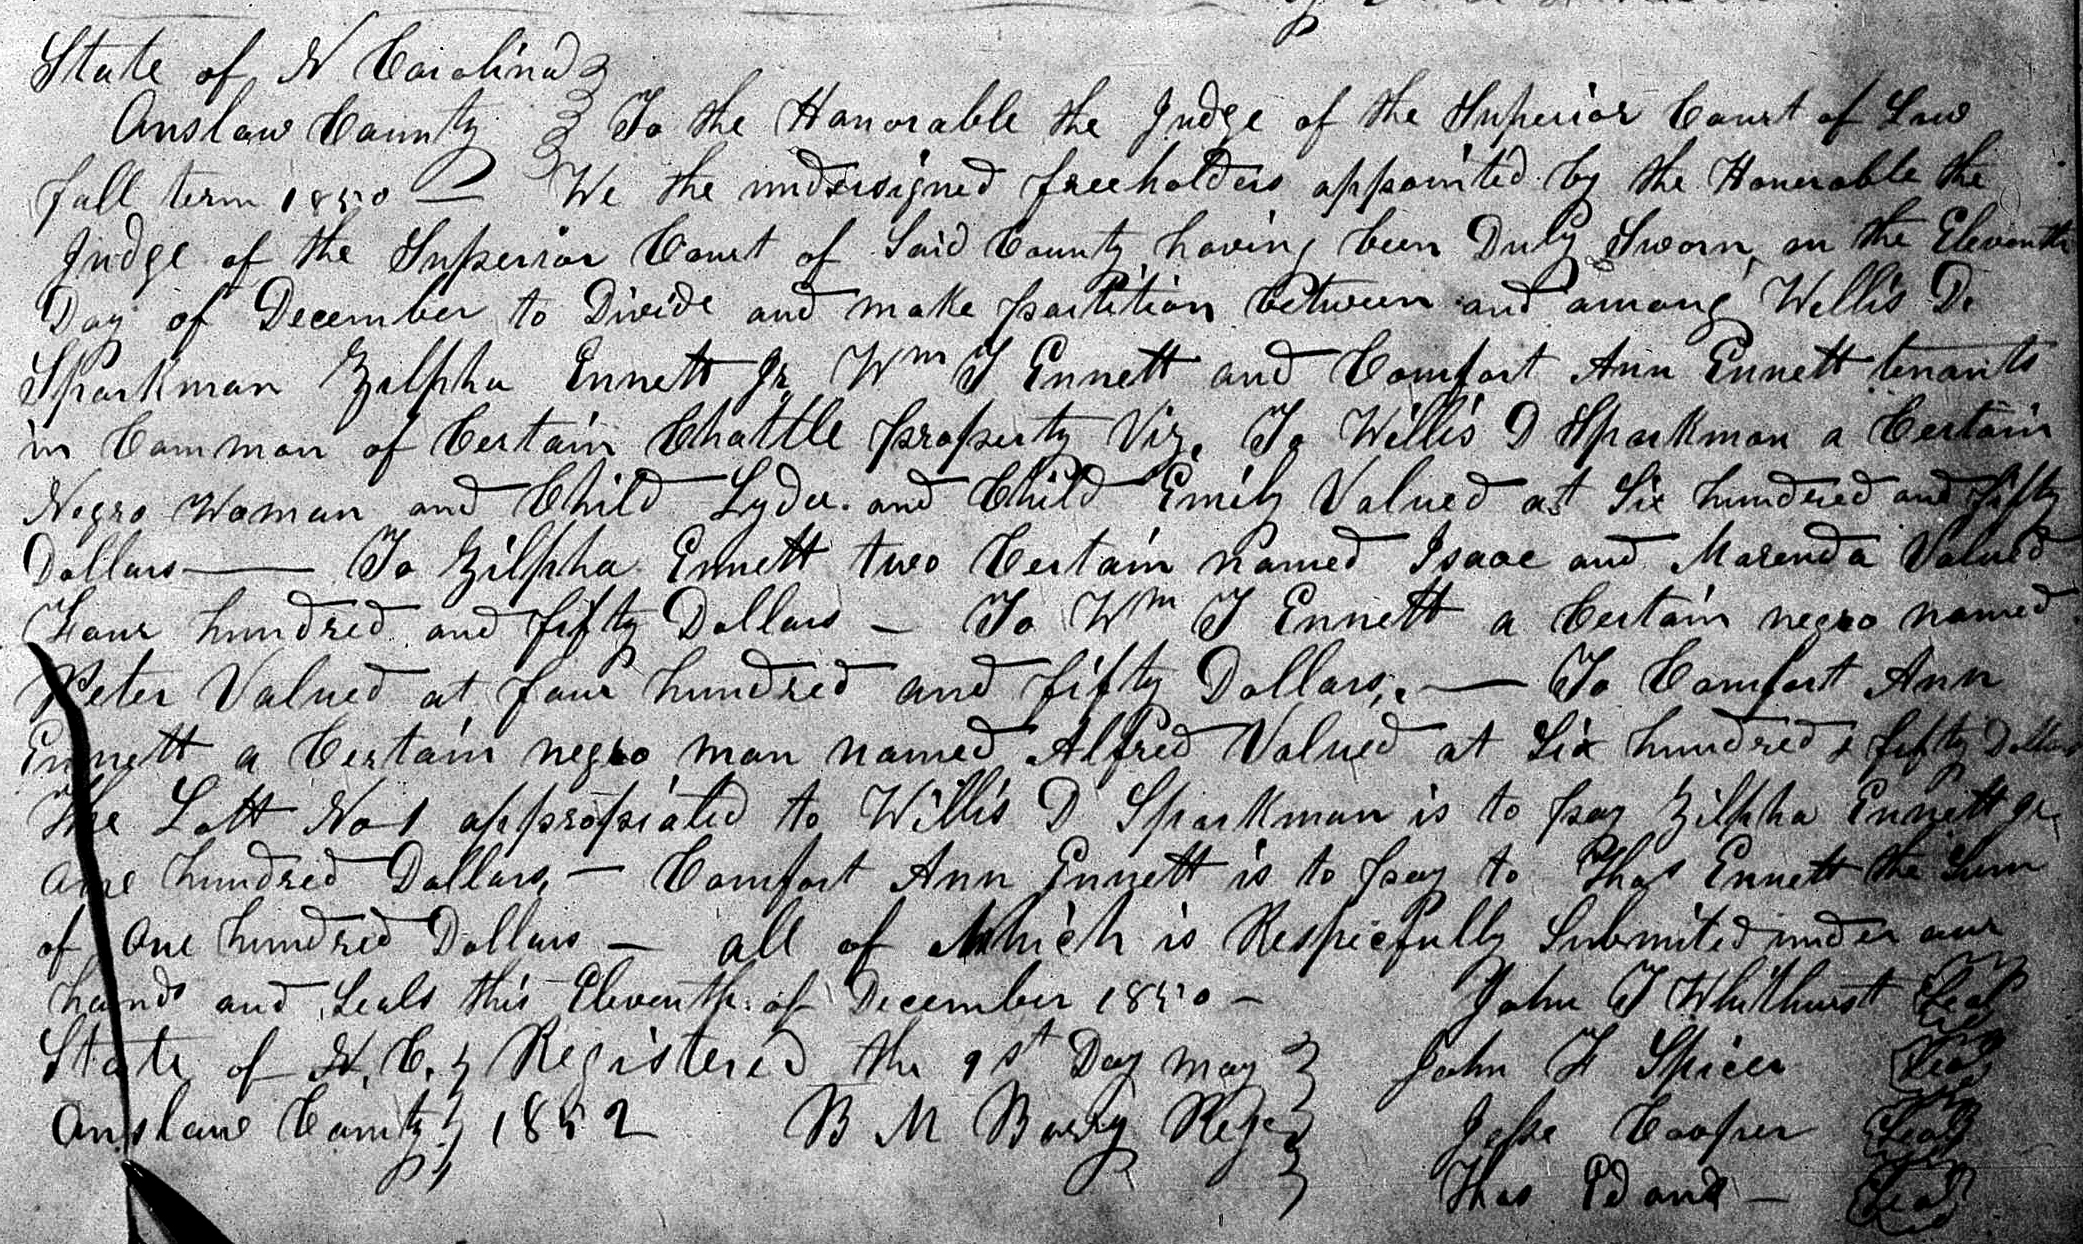 State of N Carolina
Onslow County To the Honorable the Judge of the Superior Court of Law
fall term 1850 — We the undersigned freeholders appointed by the Honerable the
Judge of the Superior Court of Said County having been Duly Sworn, on the Eleventh
Day of December to Divide and make partition between and among Willis D.
Sparkman Zilpha Ennett Jr, Wm J Ennett and Comfort Ann Ennett tenants
in Common of Certain Chattle property Viz. To Willis D Sparkman a Certain
Negro Woman and Child Lyda and Child Emily Valued at Six hundred and fifty
Dollars — To Zilpha Ennett two Certain named Isaac and Marenda Valued
Four hundred and fifty Dollars — To Wm J Ennett a Certain negro named
Peter Valued at four hundred and fifty Dollars, — To Comfort Ann
Ennett a Certain negro man named Alfred Valued at Six hundred & fifty Dollars
The Lott No 1 appropriated to Willis D Sparkman is to pay Zilpha Ennett Jr.
One hundred Dollars, — Comfort Ann Ennett is to pay to Thos Ennett the Sum
of One hundred Dollars — all of Which is Respecfully Submited under our
hands and Seals this Eleventh of December 1850 — John J Whithurst Seal
State of N. C. Registered the 1st Day may John F Spicer Seal
Onslow County 1852 B M Barry Rege Jesse Cooper Seal
Thos — Seal